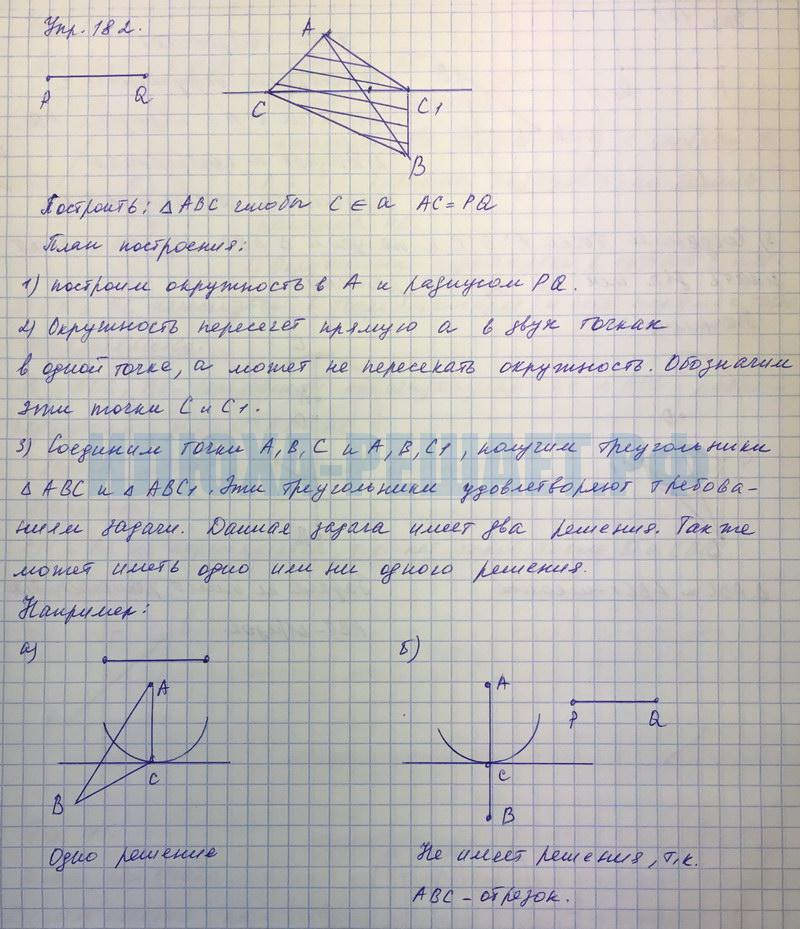 Упр. 182.
A
P Q
C C1
B
Построить: △ABC чтобы C ∈ a AC = PQ
План построения:
1) построим окружность в A и радиусом PQ.
2) Окружность пересечет прямую a в двух точках
в одной точке, а может не пересекать окружность. Обозначим
эти точки C и C1.
3) Соединим точки A, B, C и A, B, C1, получим треугольники
△ABC и △ABC1. Эти треугольники удовлетворяют требова-
ниям задачи. Данная задача имеет два решения. Также
может иметь одно или ни одного решения.
Например:
а) б)
A A
P Q
C C
B B
Одно решение
Не имеет решения, т.к.
ABC - отрезок.